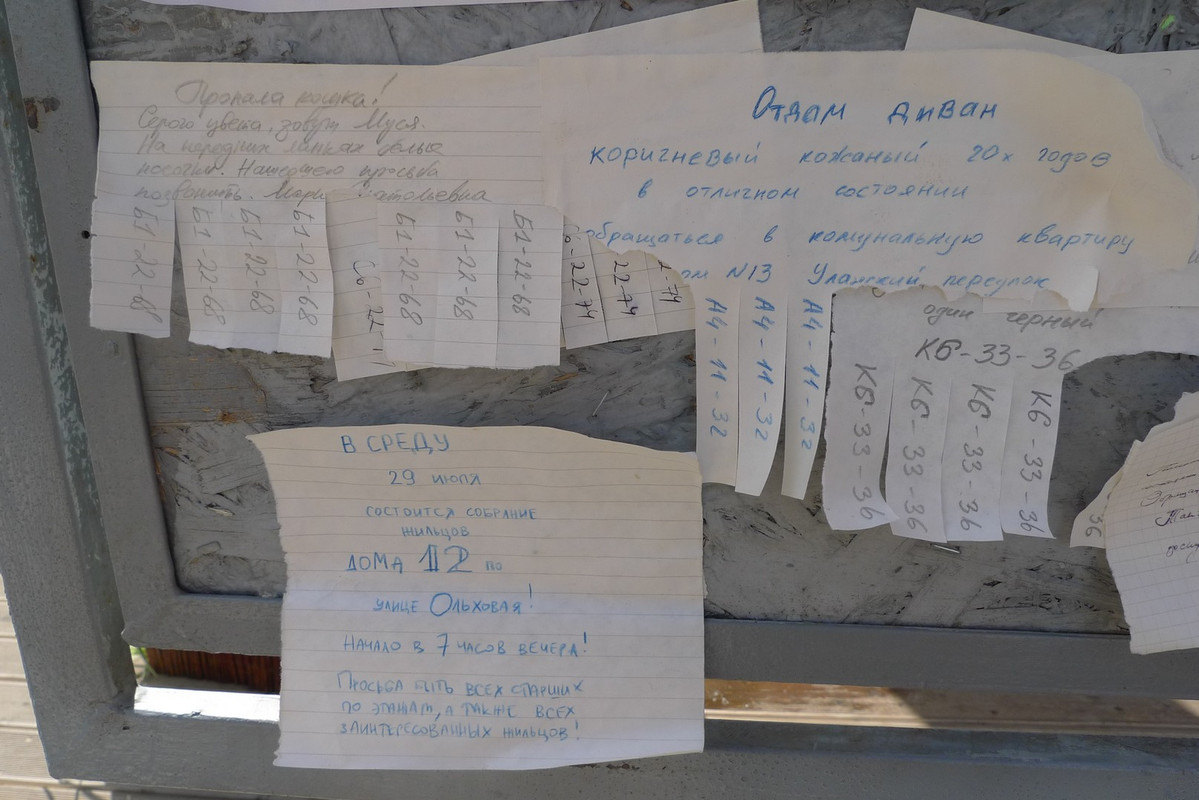 Пропала кошка!
Серого цвета, зовут Муся.
На передних лапках белые
носочки. Нашедшего просьба
позвонить. Мария
Б1-22-68
Б1-22-68
Б1-22-68
Б1-22-68
Б1-22-68
Б1-22-68
Б1-22-68
22-74
Отдам диван
коричневый кожаный 20х годов
в отличном состоянии
обращаться в комунальную квартиру
N13 Уланский переулок
А4-11-32
А4-11-32
А4-11-32
один черный
К6-33-36
К6-33-36
К6-33-36
К6-33-36
К6-33-36
36
В СРЕДУ
29 июля
состоится собрание
жильцов
дома 12 по
улице Ольховая!
Начало в 7 часов вечера!
Просьба быть всех старших
по этажам, а также всех
заинтересованных жильцов!